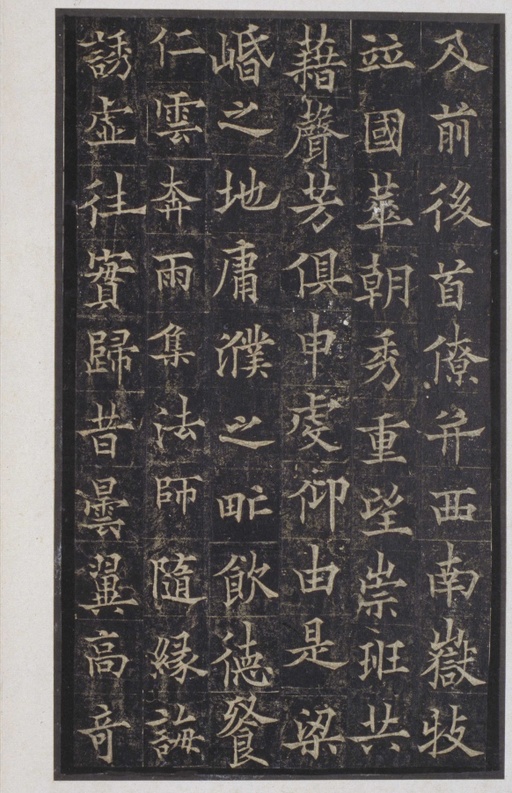 及前後首僚并西南嶽牧
竝國華朝秀重望崇班共
藉聲芳俱申虔仰由是梁
崏之地庸濮之甿飲德飡
仁雲奔雨集法師隨緣誨
誘虛往實歸昔曇翼高奇